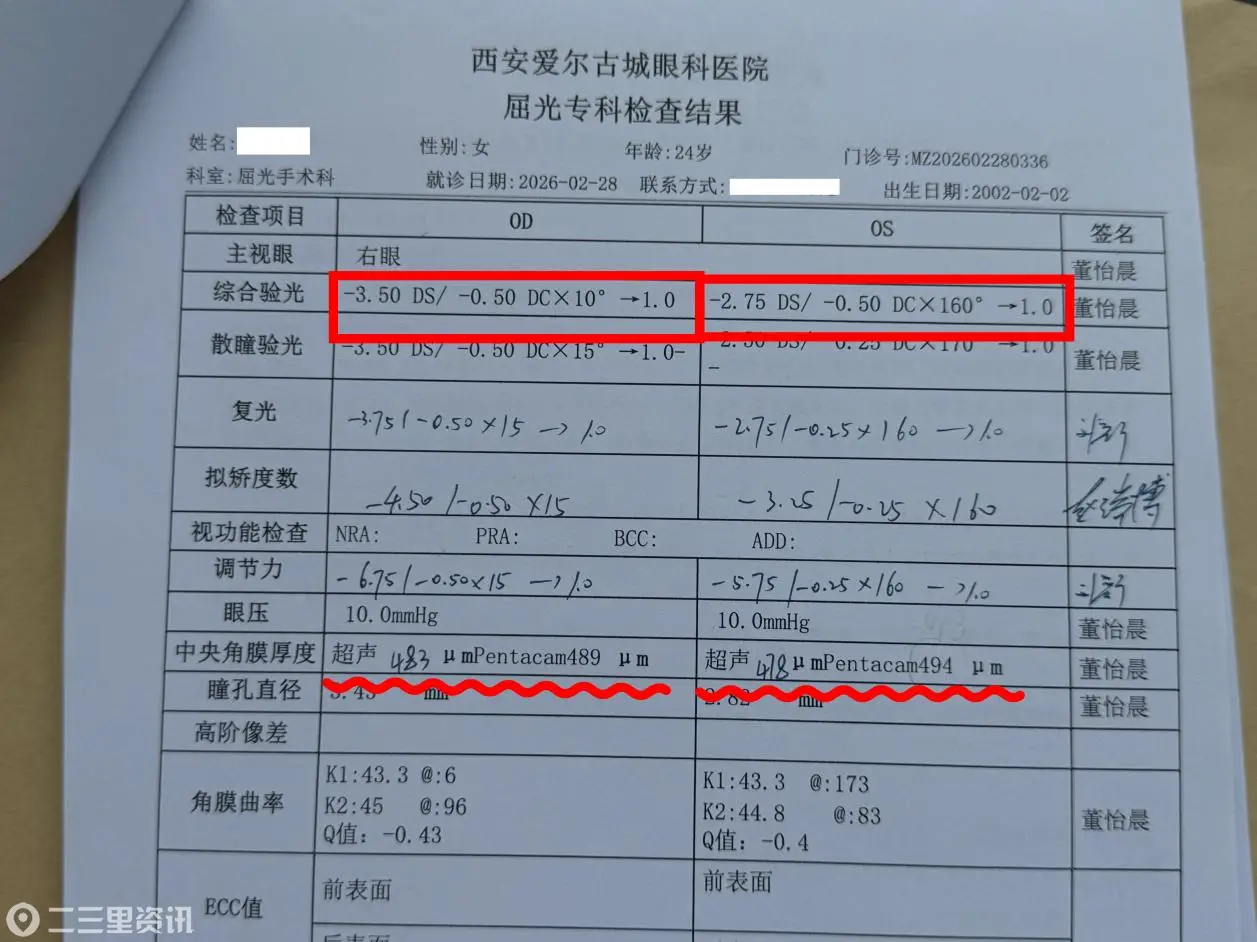 西安爱尔古城眼科医院
屈光专科检查结果
姓名: 性别:女 年龄:24岁 门诊号:MZ202602280336
科室:屈光手术科 就诊日期:2026-02-28 联系方式: 出生日期:2002-02-02
检查项目 OD OS 签名
主视眼 右眼 董怡晨
综合验光 -3.50 DS/ -0.50 DC×10° →1.0 -2.75 DS/ -0.50 DC×160° →1.0 董怡晨
散瞳验光 -3.50 DS/ -0.50 DC×15° →1.0- -2.50 DS/ -0.25 DC×170° →1.0-- 董怡晨
复光 -3.75/-0.50×15 →1.0 -2.75/-0.25×160 →1.0
拟矫度数 -4.50/-0.50×15 -3.25/-0.25×160
视功能检查 NRA: PRA: BCC: ADD:
调节力 -6.75/-0.50×15 →1.0 -5.75/-0.25×160 →1.0
眼压 10.0mmHg 10.0mmHg 董怡晨
中央角膜厚度 超声 483 μmPentacam489 μm 超声 478 μmPentacam494 μm 董怡晨
瞳孔直径 3.43 mm 2.82 mm 董怡晨
高阶像差
角膜曲率 K1:43.3 @:6 K1:43.3 @:173 董怡晨
K2:45 @:96 K2:44.8 @:83
Q值: -0.43 Q值: -0.4
ECC值 前表面 前表面
后表面
二三里资讯